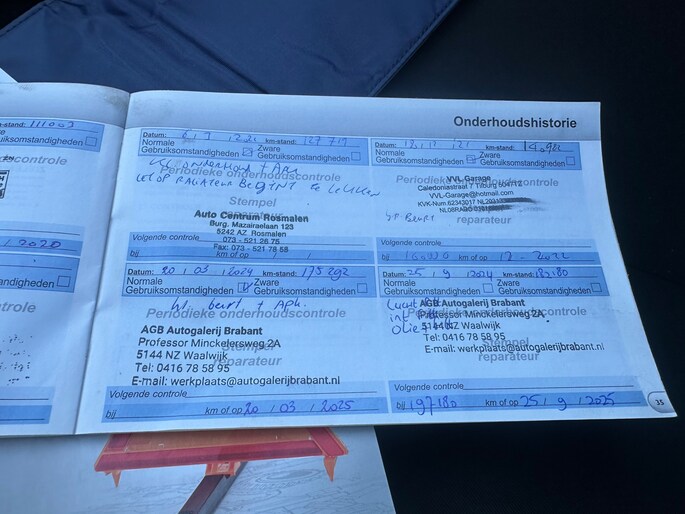 Onderhoudshistorie
km-stand: 111003
Zware
Gebruiksomstandigheden
controle
2020
Datum: km-stand: 127719
Normale
Gebruiksomstandigheden
Zware
Gebruiksomstandigheden
Periodieke onderhoudscontrole
LET OP RADIATEUR BEGINT TE LEKKEN
Stempel
reparateur
Auto Centrum Rosmalen
Burg. Mazairaelaan 123
5242 AZ Rosmalen
073 - 521 26 75
Fax: 073 - 521 78 58
Volgende controle
bij km of op
Datum: km-stand:
Normale
Gebruiksomstandigheden
Zware
Gebruiksomstandigheden
Periodieke onderhoudscontrole
Stempel
VVL-Garage
Caledoniastraat 7 Tilburg
VVL-Garage@hotmail.com
reparateur
Volgende controle
bij km of op
Datum: 20 / 03 / 2024 km-stand: 175292
Normale
Gebruiksomstandigheden
Zware
Gebruiksomstandigheden
Periodieke onderhoudscontrole
beurt + Apk.
Stempel
reparateur
AGB Autogalerij Brabant
Professor Minckelersweg 2A
5144 NZ Waalwijk
Tel: 0416 78 58 95
E-mail: werkplaats@autogalerijbrabant.nl
Volgende controle
bij km of op 20 / 03 / 2025
Datum: 25 / 9 / 2024 km-stand: 183180
Normale
Gebruiksomstandigheden
Zware
Gebruiksomstandigheden
Periodieke onderhoudscontrole
Stempel
reparateur
AGB Autogalerij Brabant
Professor Minckelersweg 2A
5144 NZ Waalwijk
Tel: 0416 78 58 95
E-mail: werkplaats@autogalerijbrabant.nl
Volgende controle
bij 197180 km of op 25 / 9 / 2025
35